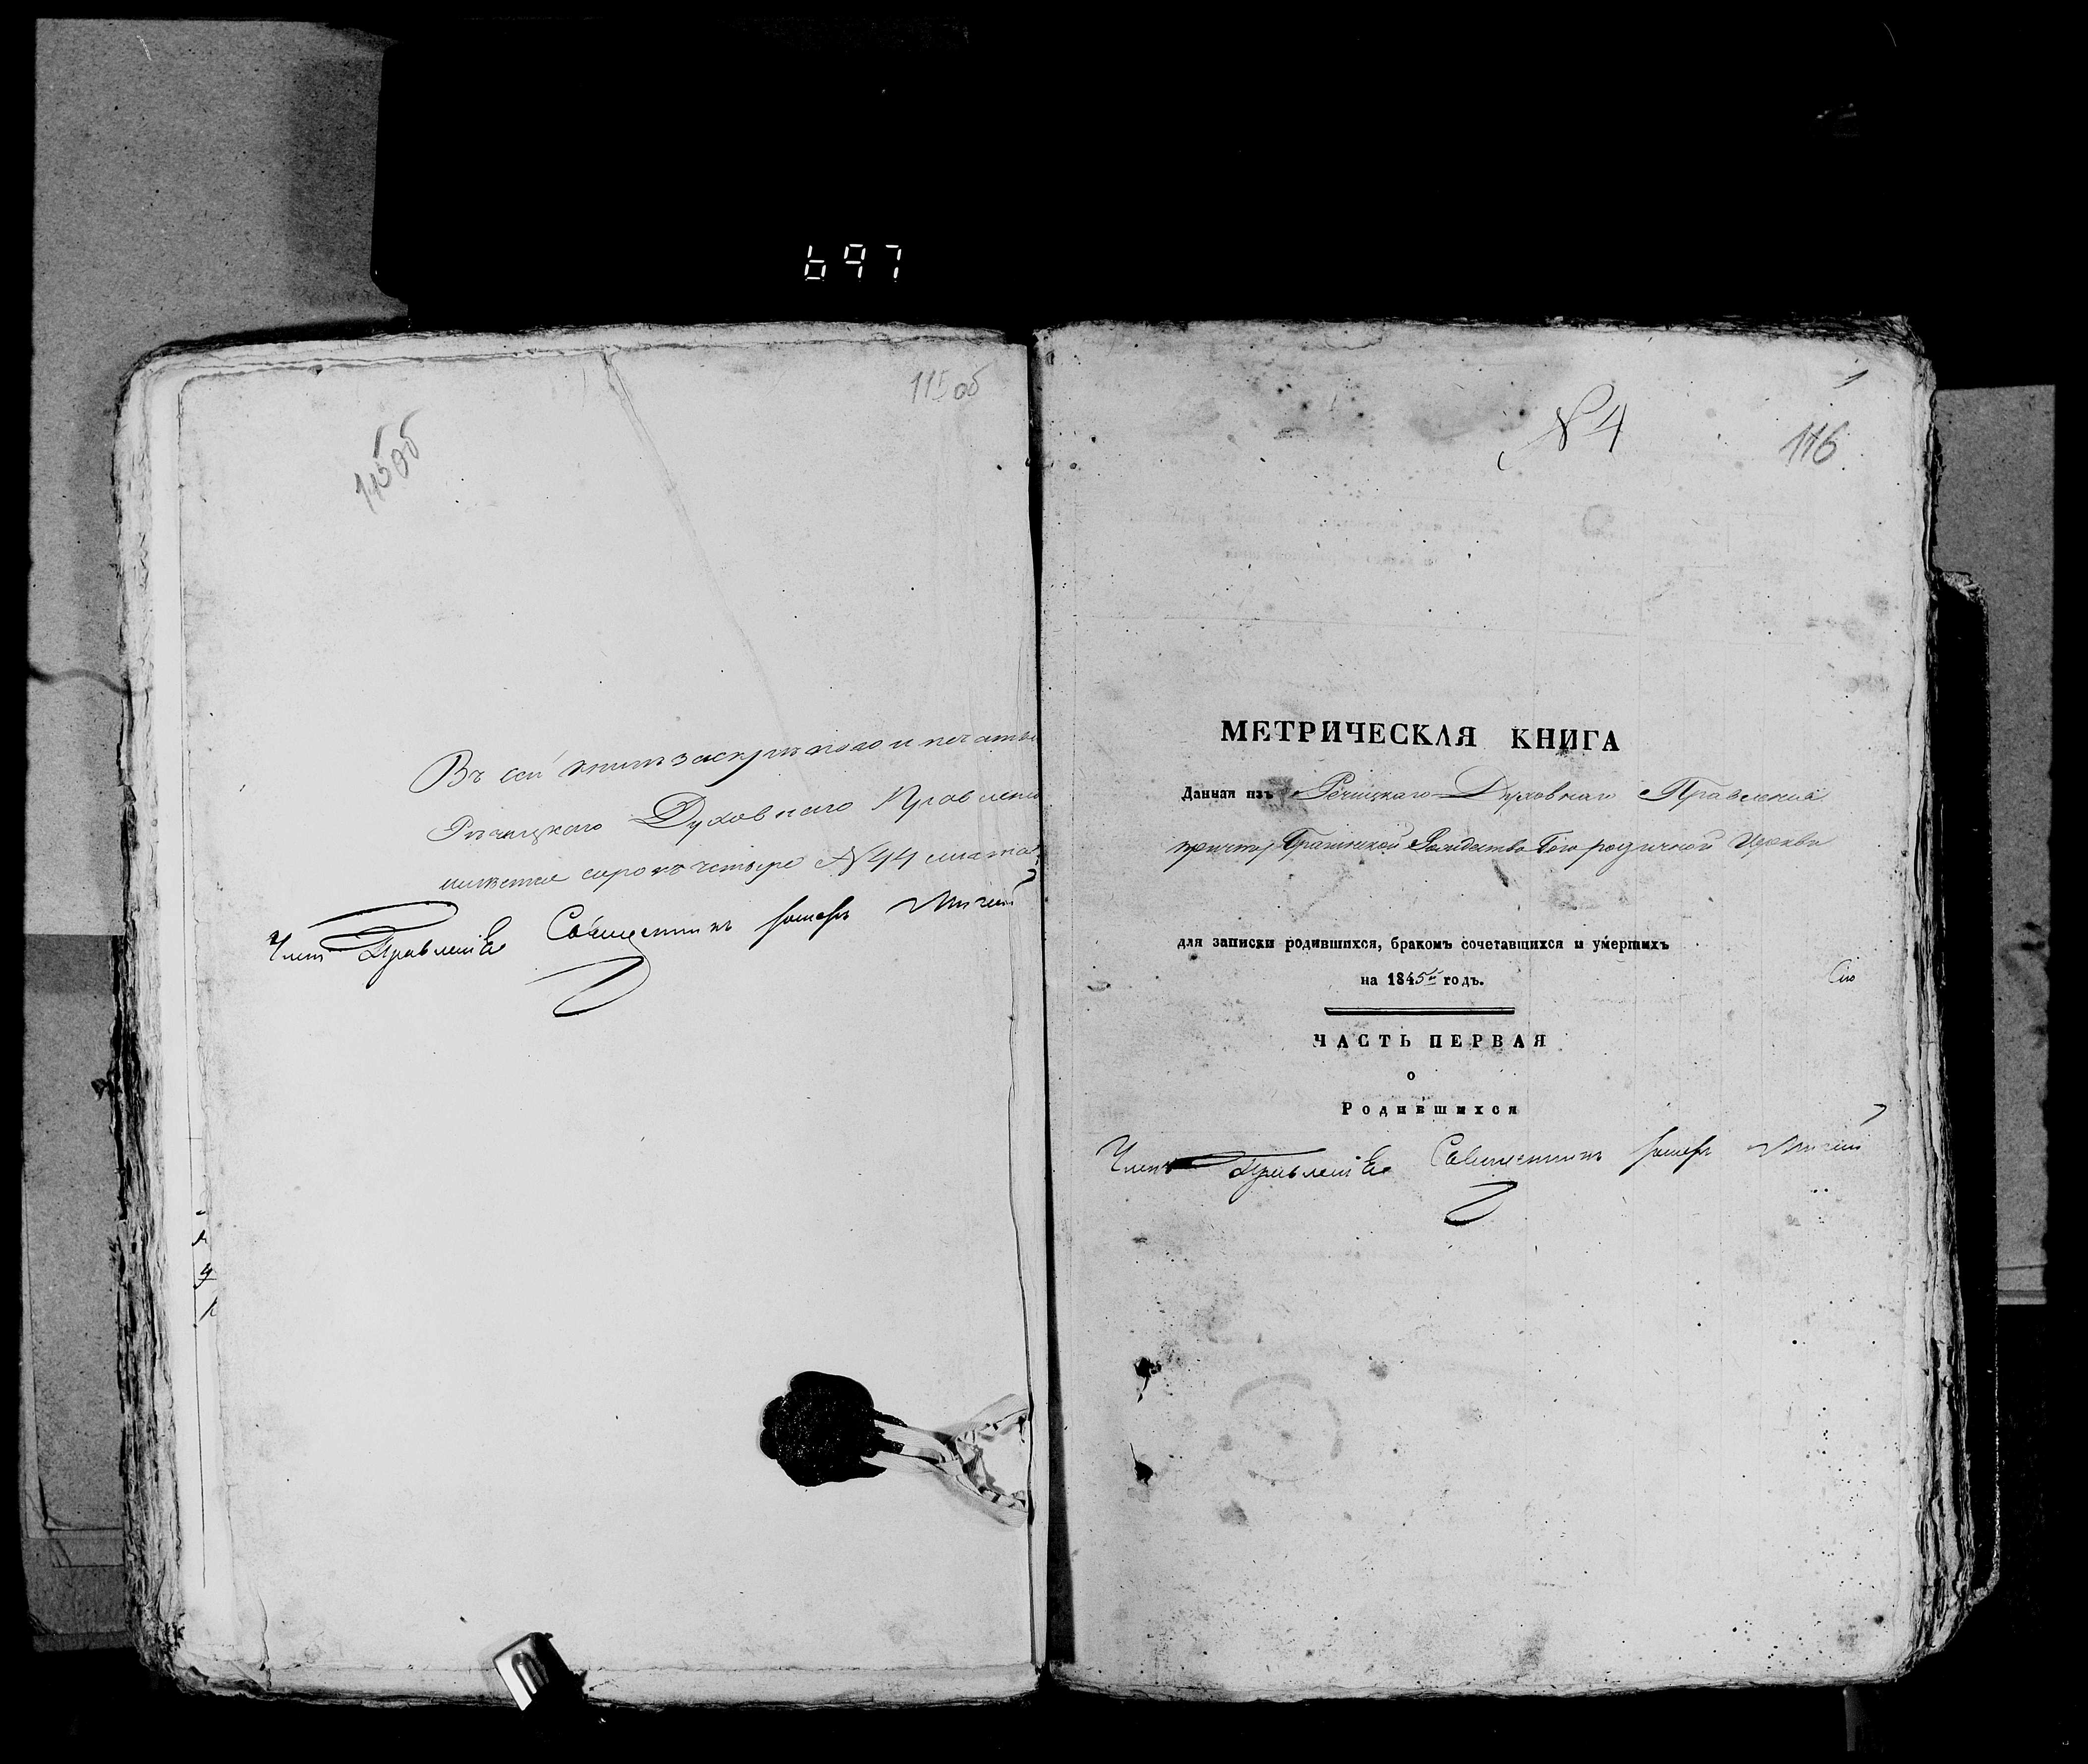 697
115об
115об
Въ сей книге за скрѣпою и печатью
Рѣчицкаго Духовнаго Правленія
имѣется сорокъ четыре №44 листа
Членъ Правленія Священникъ
1
№ 4
116
МЕТРИЧЕСКАЯ КНИГА
Данная изъ Речицкаго Духовнаго Правленія
причту Рождество Богородичной Церкви
для записки родившихся, бракомъ сочетавшихся и умершихъ
на 1845й годъ.
Сію
ЧАСТЬ ПЕРВАЯ
о
Родившихся
Членъ Правленія Священникъ